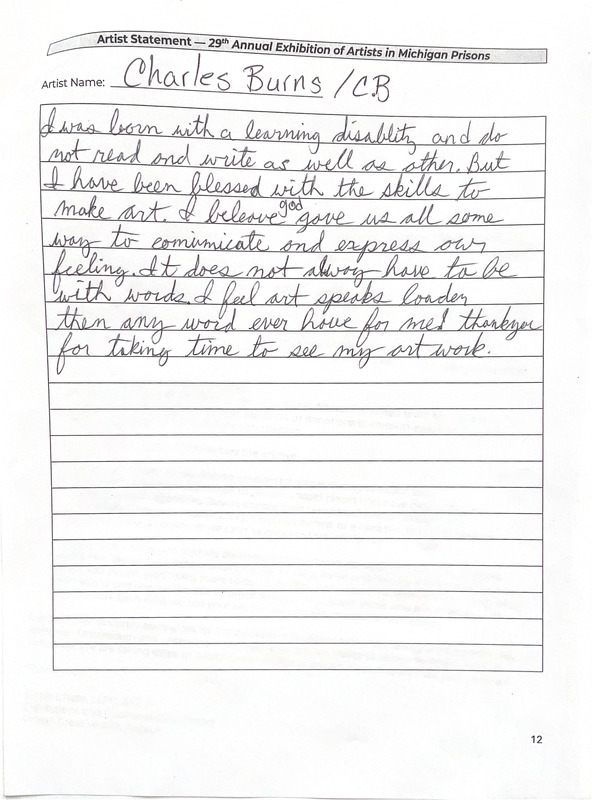 Artist Statement — 29th Annual Exhibition of Artists in Michigan Prisons
Artist Name: Charles Burns / C.B
I was born with a learning disablity and do
not read and write as well as other. But
I have been blessed with the skills to
make art. I beleave god gave us all some
way to comimicate and express our
feeling. It does not alway have to be
with words. I feel art speaks louder
then any word ever have for me! thankyou
for taking time to see my art work.
12